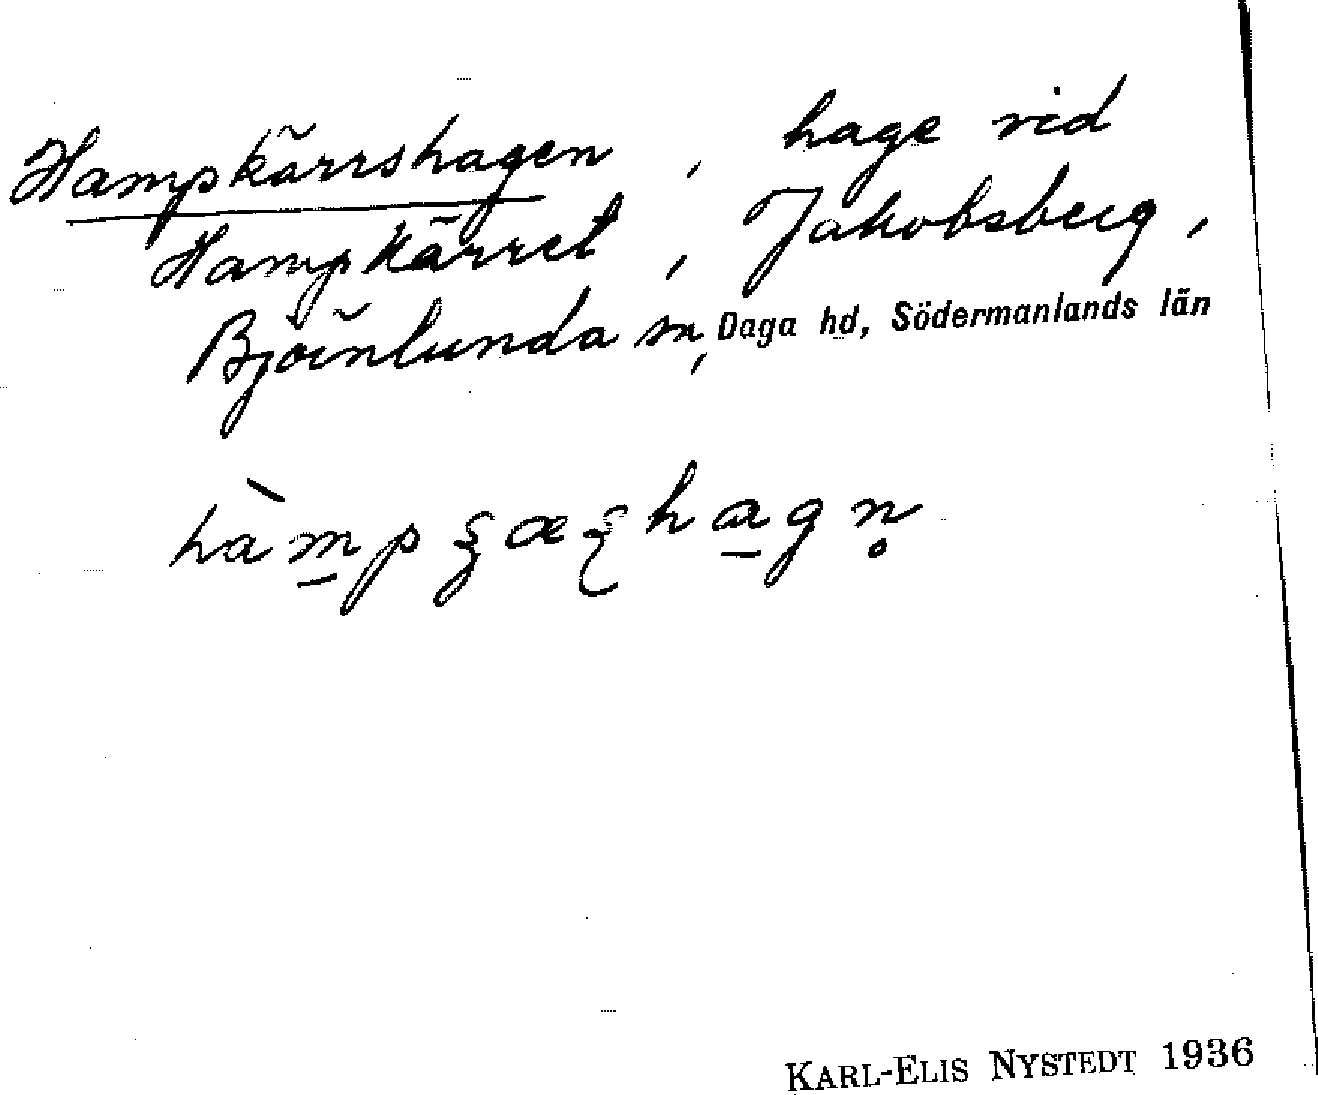 Hampkärrshagen, hage vid
Hampkärret, Jakobsberg,
Björnlunda sn, Daga hd, Södermanlands län
KARL-ELIS NYSTEDT 1936